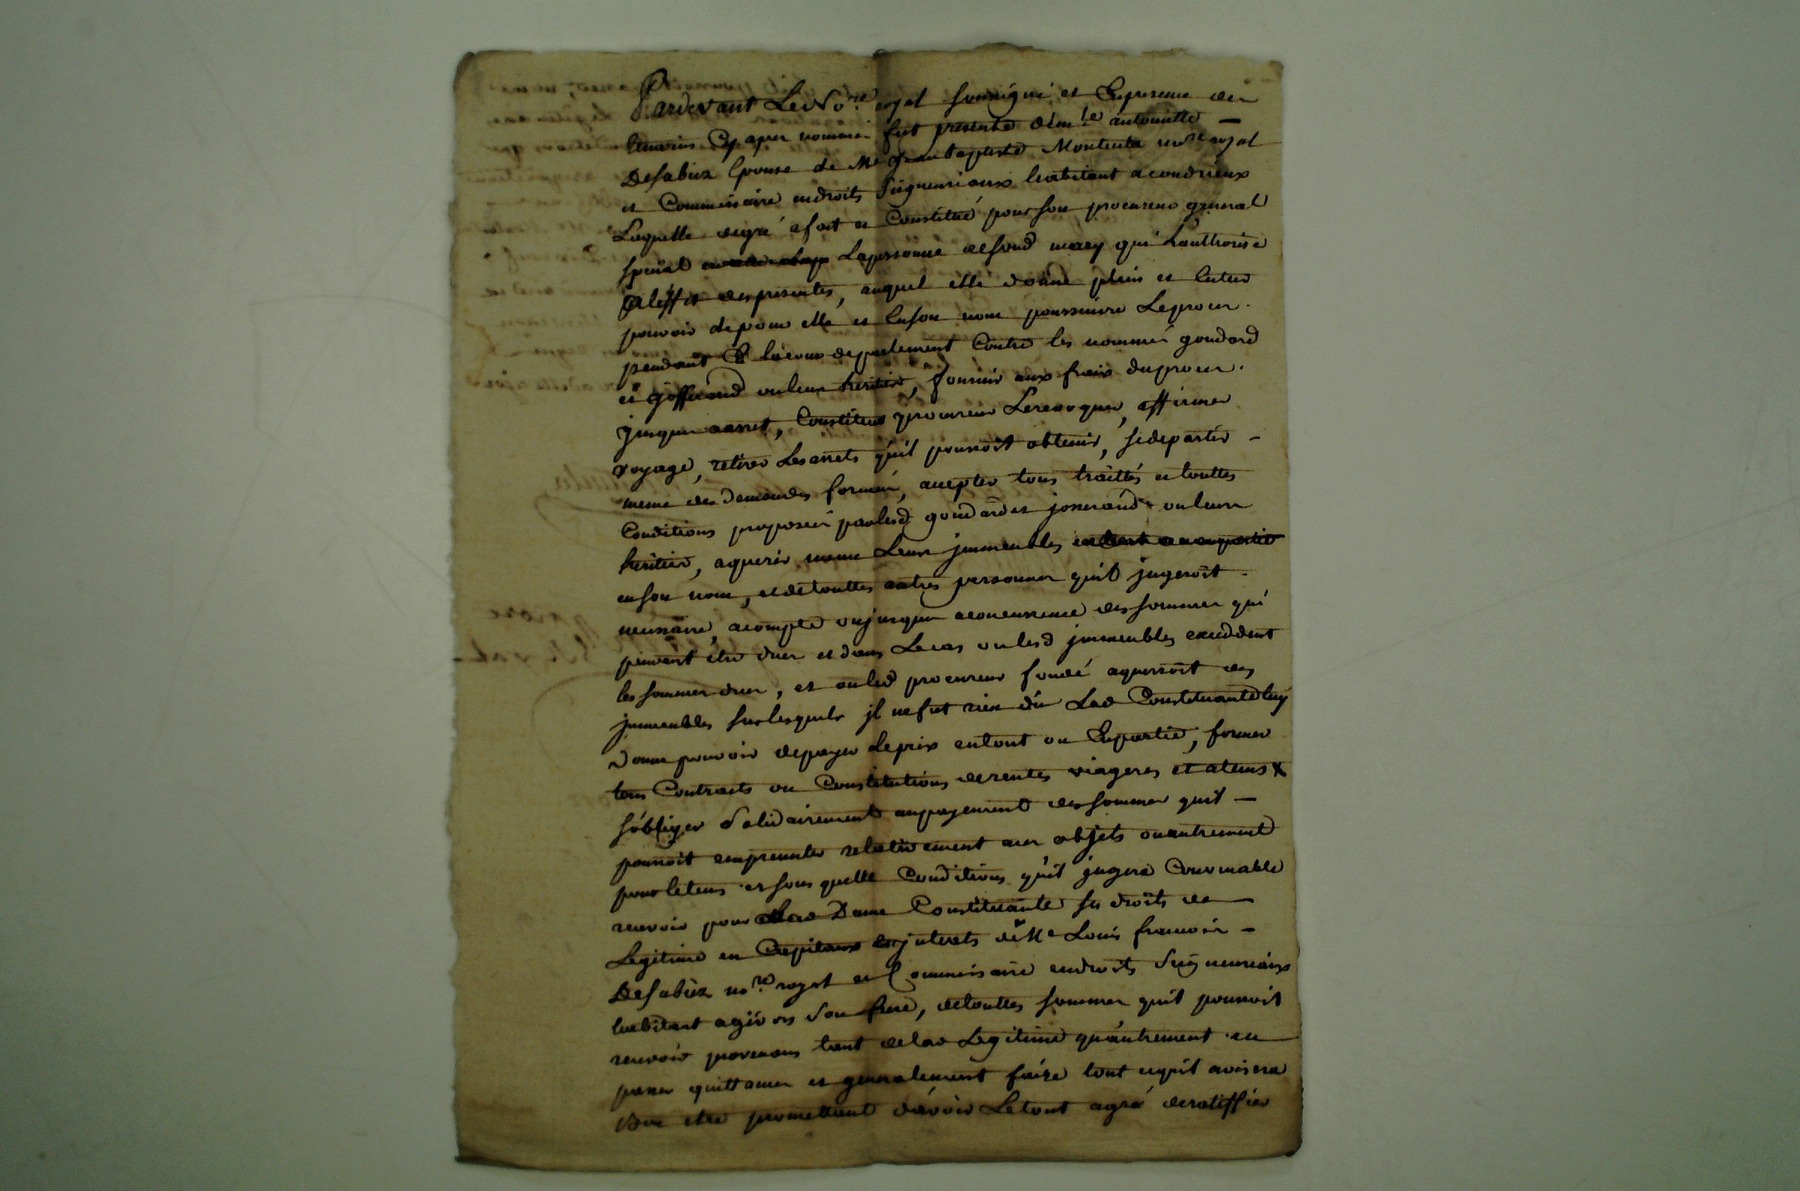 Pardevant Le No.re royal soussigné et En presence des
temoins Cy apres nommés fut presente dem.lle antoinette
Desabiez Epouse de Me Jean Baptiste Montenta no.re royal
et Commissaire en droits Seigneuriaux habitant a condrieux
Laquelle degré a fait et Constitué pour son procureur general
special La personne de sond mary qui L'authorise
a leffet des presentes, auquel elle donne plein et Entier
pouvoir de pour elle et En son nom poursuivre Le proces
pendant En la cour de parlement Contre les nommés goudard
et ou leurs heritiers, fournir aux frais du proces
jusques arret, Constituer procureur Le revoquer, affirmer
voyage, retirer Les arrets qu'il pourroit obtenir, se departir
meme des demandes formées, accepter tous traittés et touttes
Conditions proposées par lesd goudard et josserand ou leurs
heritiers, aquerir meme Leurs jmmeubles
en son nom, et de touttes autres personnes qu'il jugeroit
necessaire, a compte ou jusques a concurrence des sommes qui
peuvent etre dues et dans Le cas ou lesd jmmeubles excedent
les sommes dues, et ou led procureur fondé aqueriroit des
jmmeubles sur lesquels jl ne fut rien dû Lad Constituante luy
donne pouvoir de payer le prix en tout ou En partie, former
tous Contracts ou Constitutions de rentes viageres et a tems
s'obliger Solidairement au payement des sommes qu'il
pourroit emprunter relativement aux objets ou autrement
pour le tems et sous quelle Conditions qu'il jugera Convenable
recevoir pour Lad Dame Constituante ses droits de
Legitime en Capitaux et jnterets de Me Louis francois
Desabiez no.re royal et Commissaire en droits Seigneuriaux
habitant a givors Son frere, de touttes sommes qu'il pourroit
recevoir provenant tant de lad Legitime qu'autrement en
passer quittances et generalement faire tout ce qu'il avisera
Bon etre promettant d'avoir Le tout agré de ratiffier